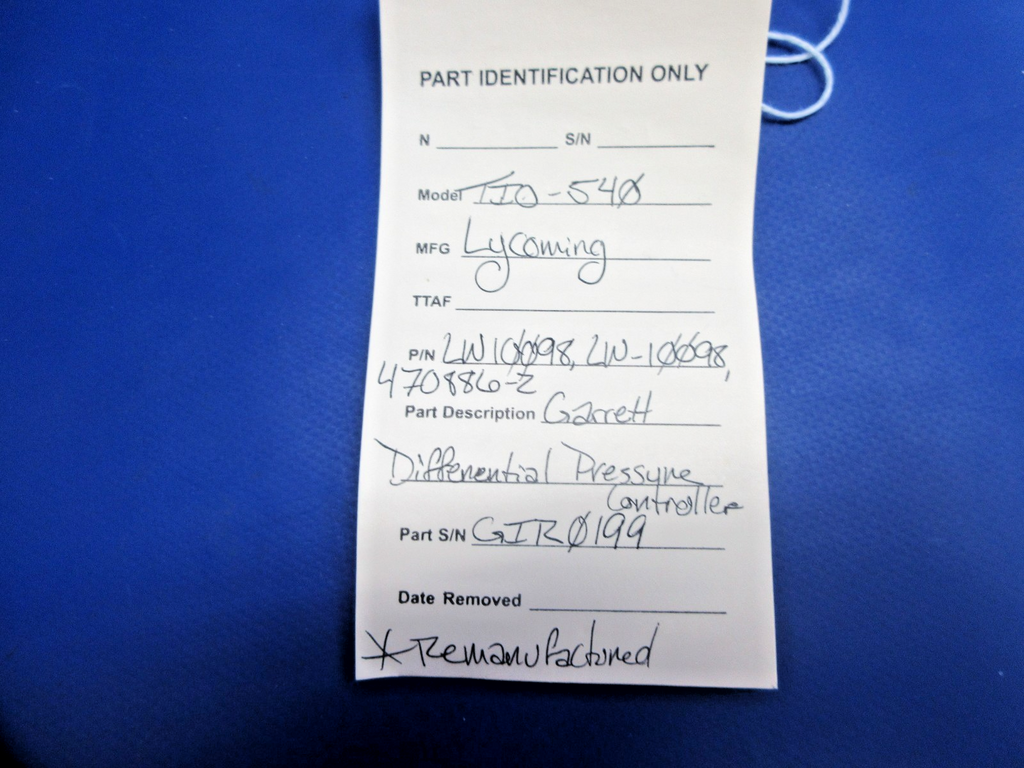 PART IDENTIFICATION ONLY
N S/N
Model TIO-540
MFG Lycoming
TTAF
P/N LW10098, LW-10098,
470886-2
Part Description Garrett
Differential Pressure
Controller
Part S/N GIR0199
Date Removed
*Remanufactured